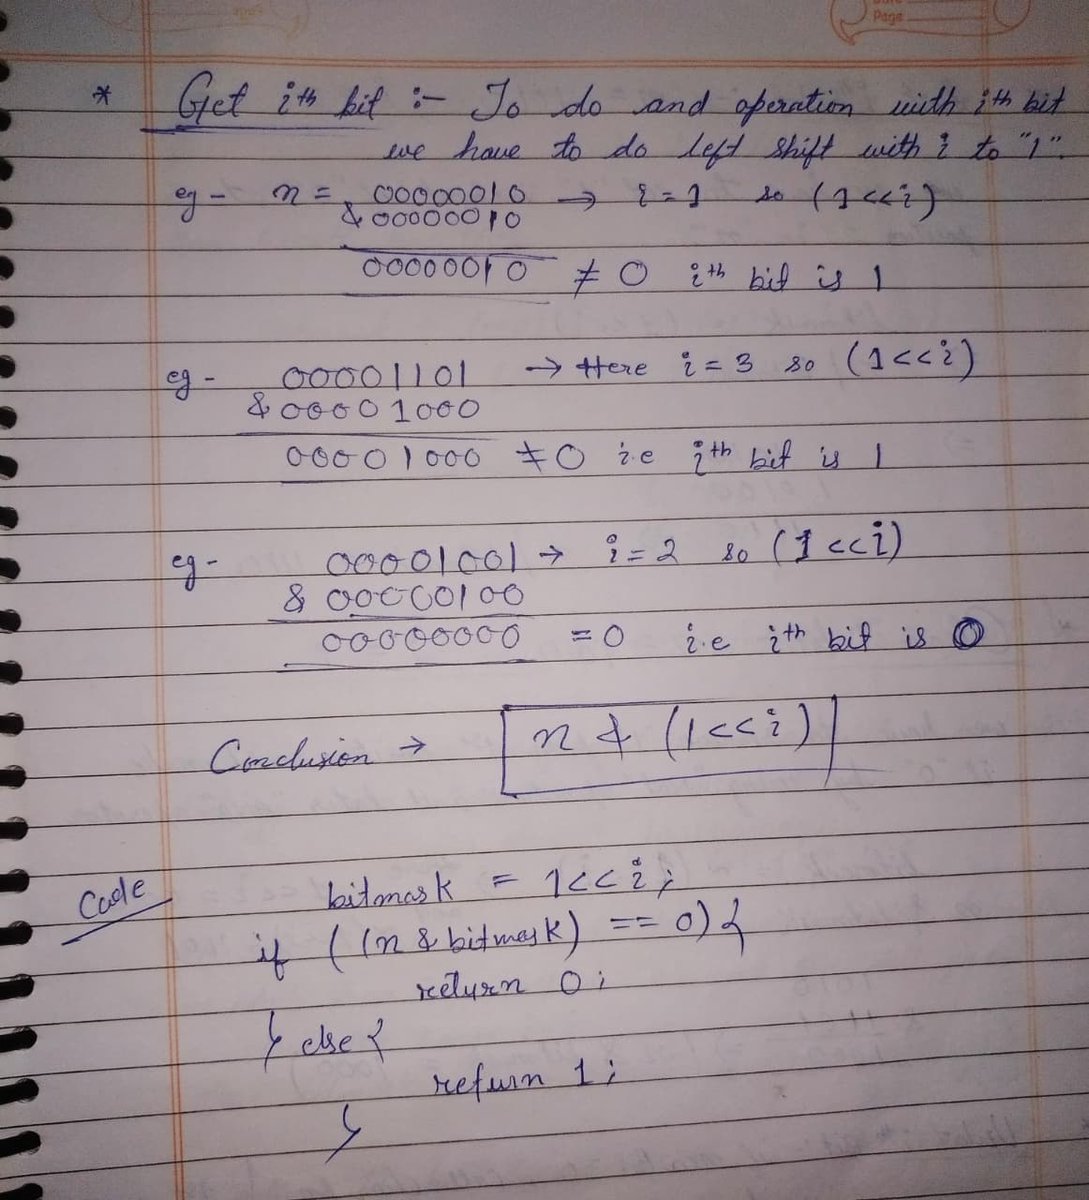 Page
* Get ith bit :- To do and operation with ith bit
we have to do left shift with i to "1".
eg - n = 00000010 → i = 1 so (1<<i)
& 00000010
00000010 ≠ 0 ith bit is 1
eg - 00001101 → Here i = 3 so (1<<i)
& 00001000
00001000 ≠ 0 i.e ith bit is 1
eg - 00001001 → i = 2 so (1<<i)
& 00000100
00000000 = 0 i.e ith bit is 0
Conclusion → n & (1<<i)
Code bitmask = 1<<i;
if ((n & bitmask) == 0) {
return 0;
} else {
return 1;
}